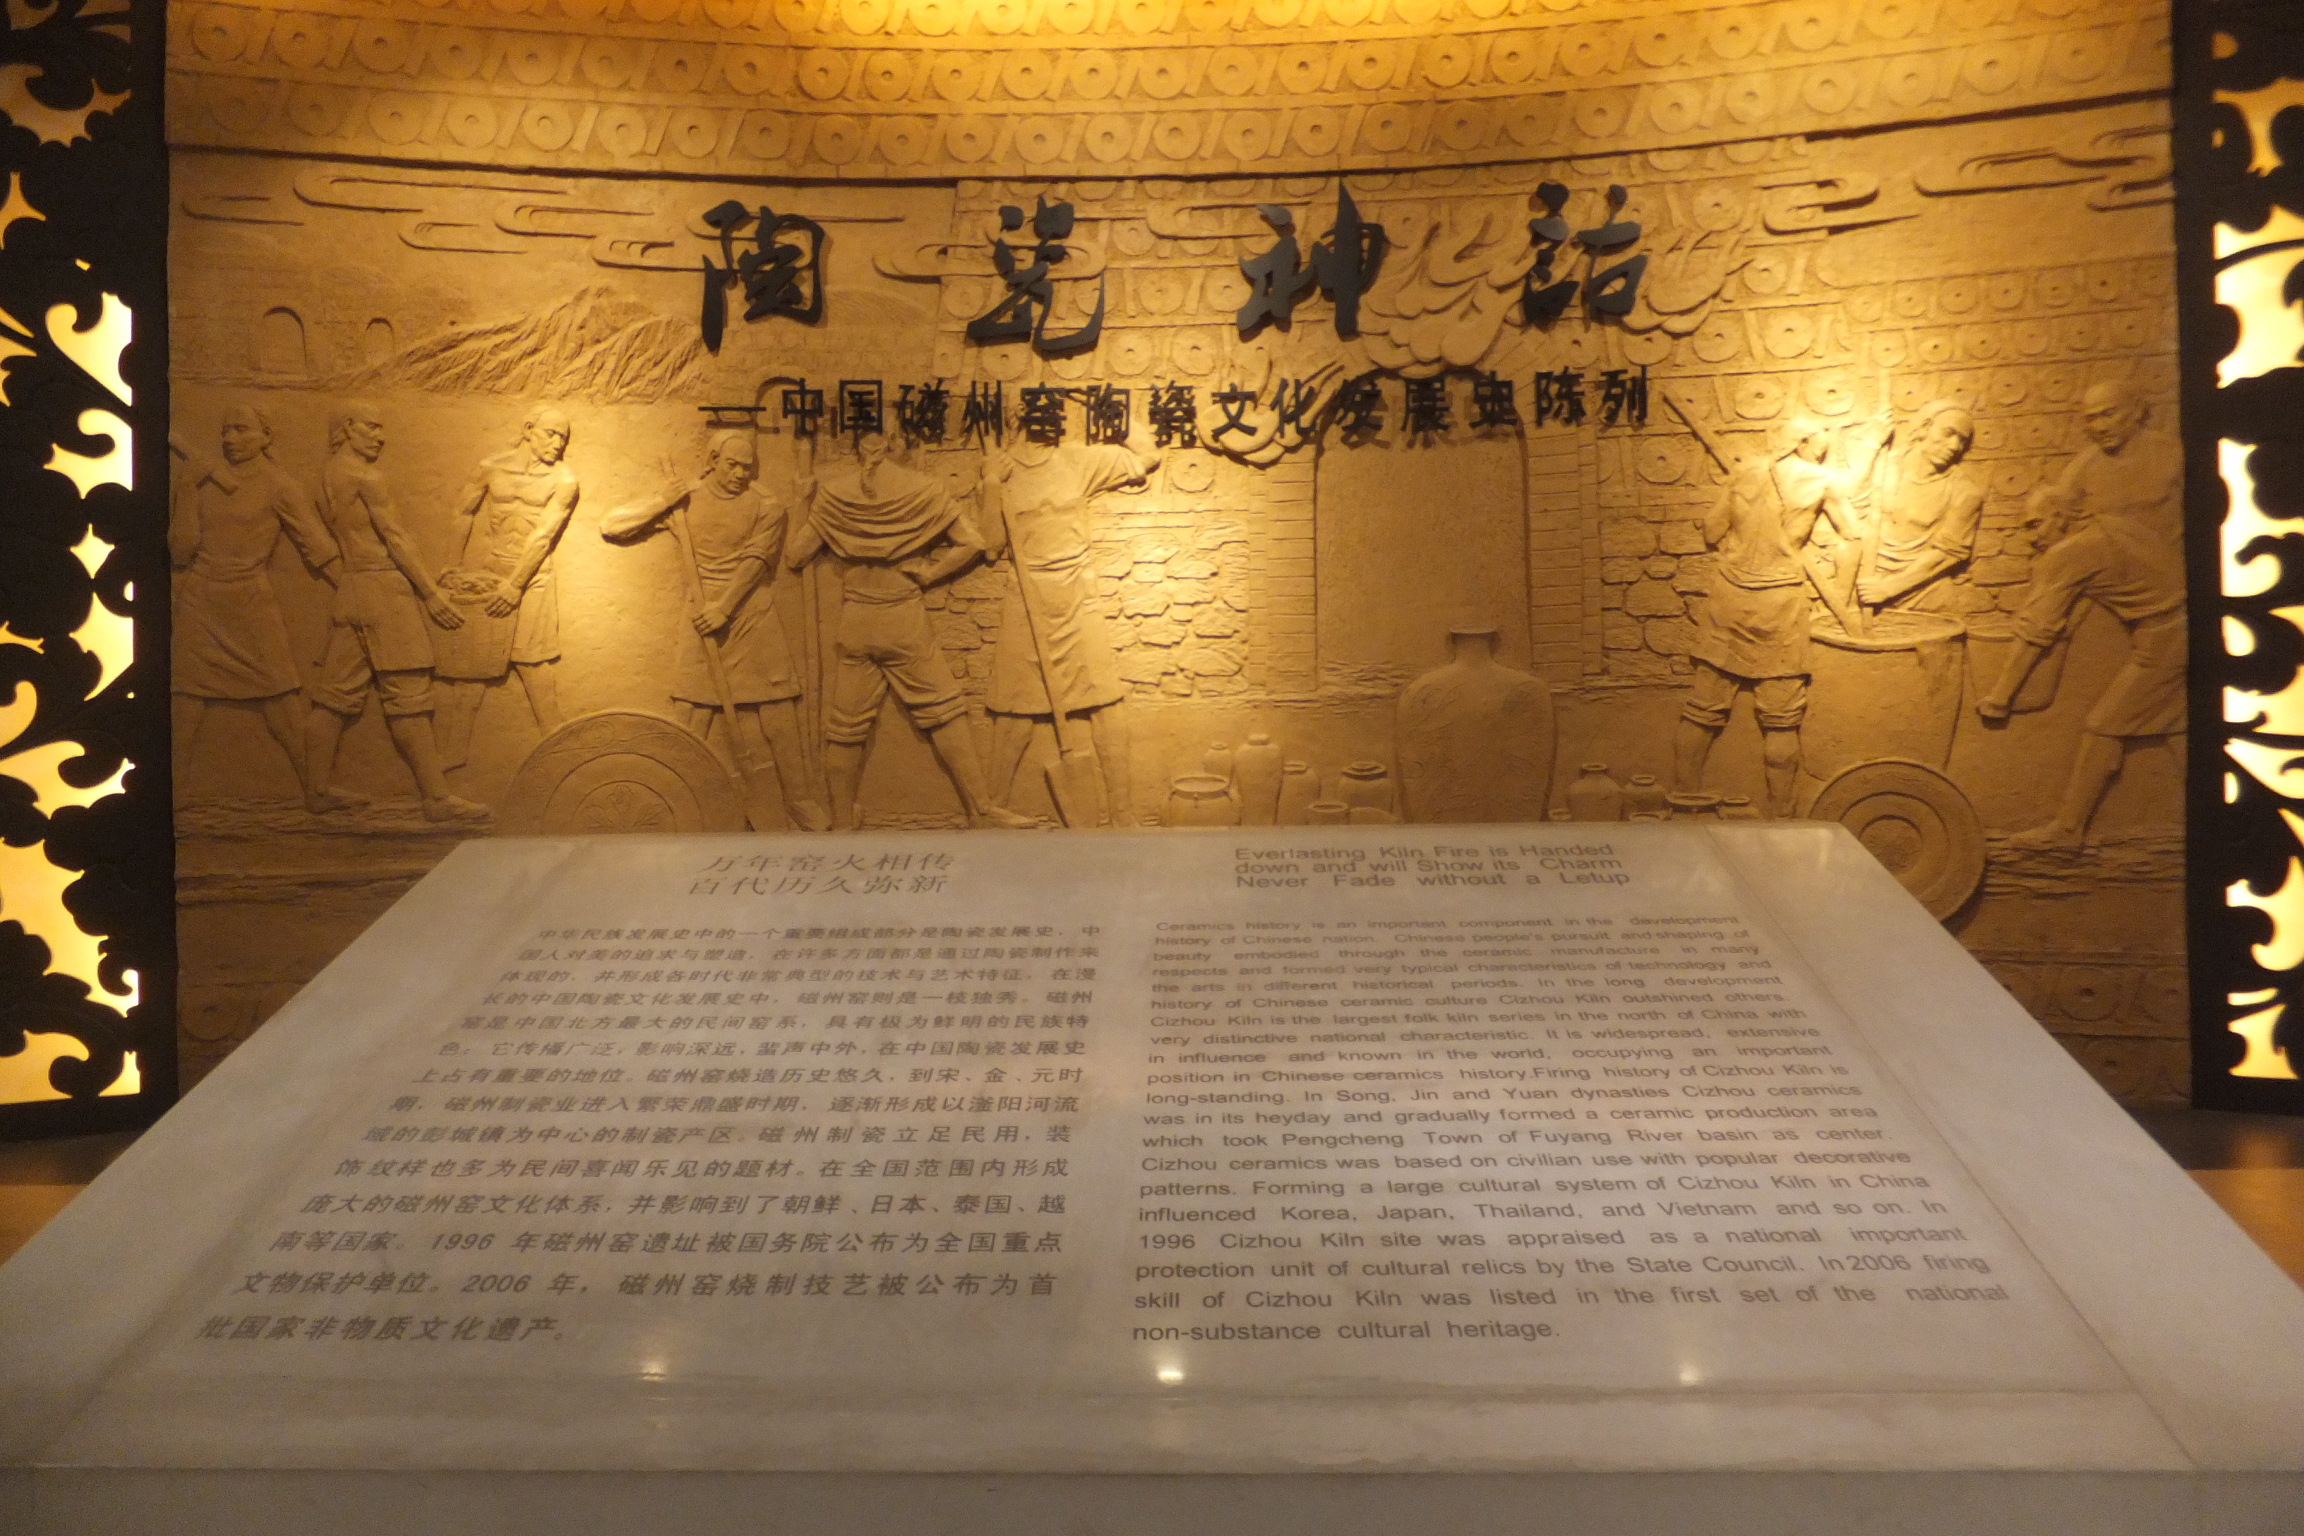 陶瓷神话
—中国磁州窑陶瓷文化发展史陈列
万年窑火相传
百代历久弥新
中华民族发展史中的一个重要组成部分是陶瓷发展史，中
国人对美的追求与塑造，在许多方面都是通过陶瓷制作来
体现的，并形成各时代非常典型的技术与艺术特征，在漫
长的中国陶瓷文化发展史中，磁州窑则是一枝独秀。磁州
窑是中国北方最大的民间窑系，具有极为鲜明的民族特
色；它传播广泛，影响深远，蜚声中外，在中国陶瓷发展史
上占有重要的地位。磁州窑烧造历史悠久，到宋、金、元时
期，磁州制瓷业进入繁荣鼎盛时期，逐渐形成以滏阳河流
域的彭城镇为中心的制瓷产区。磁州制瓷立足民用，装
饰纹样也多为民间喜闻乐见的题材。在全国范围内形成
庞大的磁州窑文化体系，并影响到了朝鲜、日本、泰国、越
南等国家。1996 年磁州窑遗址被国务院公布为全国重点
文物保护单位。2006 年，磁州窑烧制技艺被公布为首
批国家非物质文化遗产。
Everlasting Kiln Fire is Handed
down and will Show its Charm
Never Fade without a Letup
Ceramics history is an important component in the development
history of Chinese nation. Chinese people's pursuit and shaping of
beauty embodied through the ceramic manufacture in many
respects and formed very typical characteristics of technology and
the arts in different historical periods. In the long development
history of Chinese ceramic culture Cizhou Kiln outshined others.
Cizhou Kiln is the largest folk kiln series in the north of China with
very distinctive national characteristic. It is widespread, extensive
in influence and known in the world, occupying an important
position in Chinese ceramics history.Firing history of Cizhou Kiln is
long-standing. In Song, Jin and Yuan dynasties Cizhou ceramics
was in its heyday and gradually formed a ceramic production area
which took Pengcheng Town of Fuyang River basin as center.
Cizhou ceramics was based on civilian use with popular decorative
patterns. Forming a large cultural system of Cizhou Kiln in China
influenced Korea, Japan, Thailand, and Vietnam and so on. In
1996 Cizhou Kiln site was appraised as a national important
protection unit of cultural relics by the State Council. In 2006 firing
skill of Cizhou Kiln was listed in the first set of the national
non-substance cultural heritage.